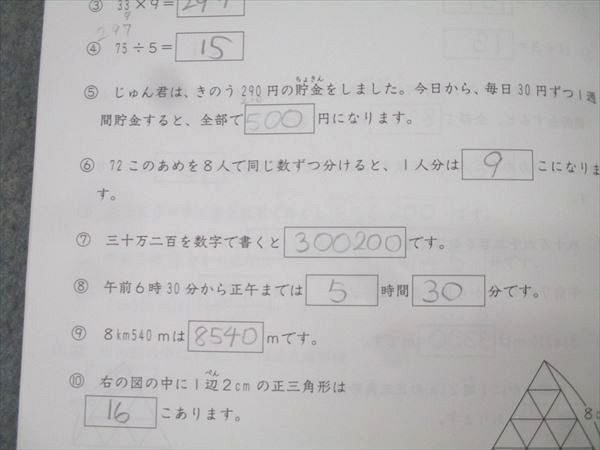 ③ 33×9=297
9
297
④ 75÷5=15
⑤ じゅん君は、きのう290円の貯金をしました。今日から、毎日30円ずつ1週
ちょきん
間貯金すると、全部で500円になります。
⑥ 72このあめを8人で同じ数ずつ分けると、1人分は9こになりま
す。
⑦ 三十万二百を数字で書くと300200です。
⑧ 午前6時30分から正午までは5時間30分です。
⑨ 8km540mは8540mです。
⑩ 右の図の中に1辺2cmの正三角形は
ぺん
16こあります。
8c